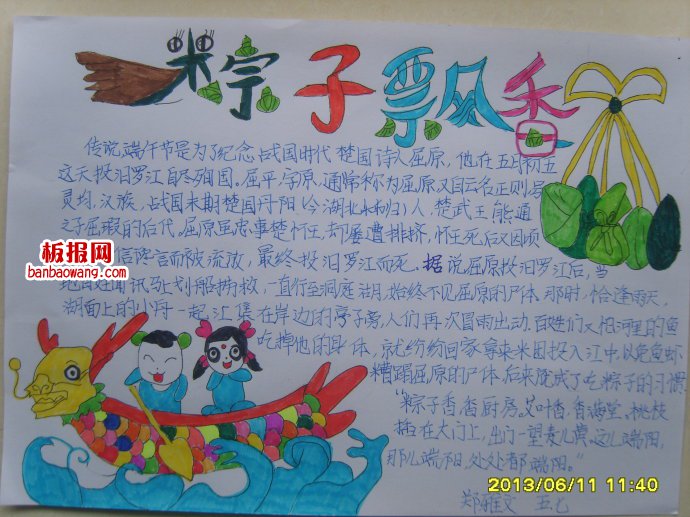 粽子飘香
传说端午节是为了纪念战国时代楚国诗人屈原,他在五月初五
这天投汨罗江自尽殉国。屈平,字原,通常称为屈原,又自云名正则,号
灵均,汉族,战国末期楚国丹阳(今湖北秭归)人,楚武王熊通
之子屈瑕的后代。屈原虽忠事楚怀王,却屡遭排挤,怀王死后又因顷
信谗言而被流放,最终投汨罗江而死。据说屈原投汨罗江后,当
地百姓闻讯马上划船捞救,一直行至洞庭湖,始终不见屈原的尸体。那时,恰逢雨天,
湖面上的小舟一起汇集在岸边的亭子旁,人们再次冒雨出动。百姓们又怕河里的鱼
吃掉他的身体,就纷纷回家拿来米团投入江中,以免鱼虾
糟蹋屈原的尸体,后来就成了吃粽子的习惯
“粽子香,香厨房。艾叶香,香满堂。桃枝
插在大门上,出门一望麦儿黄。这儿端阳,
那儿端阳,处处都端阳。”
郑雅文 五乙
板报网
banbaowang.com
2013/06/11 11:40